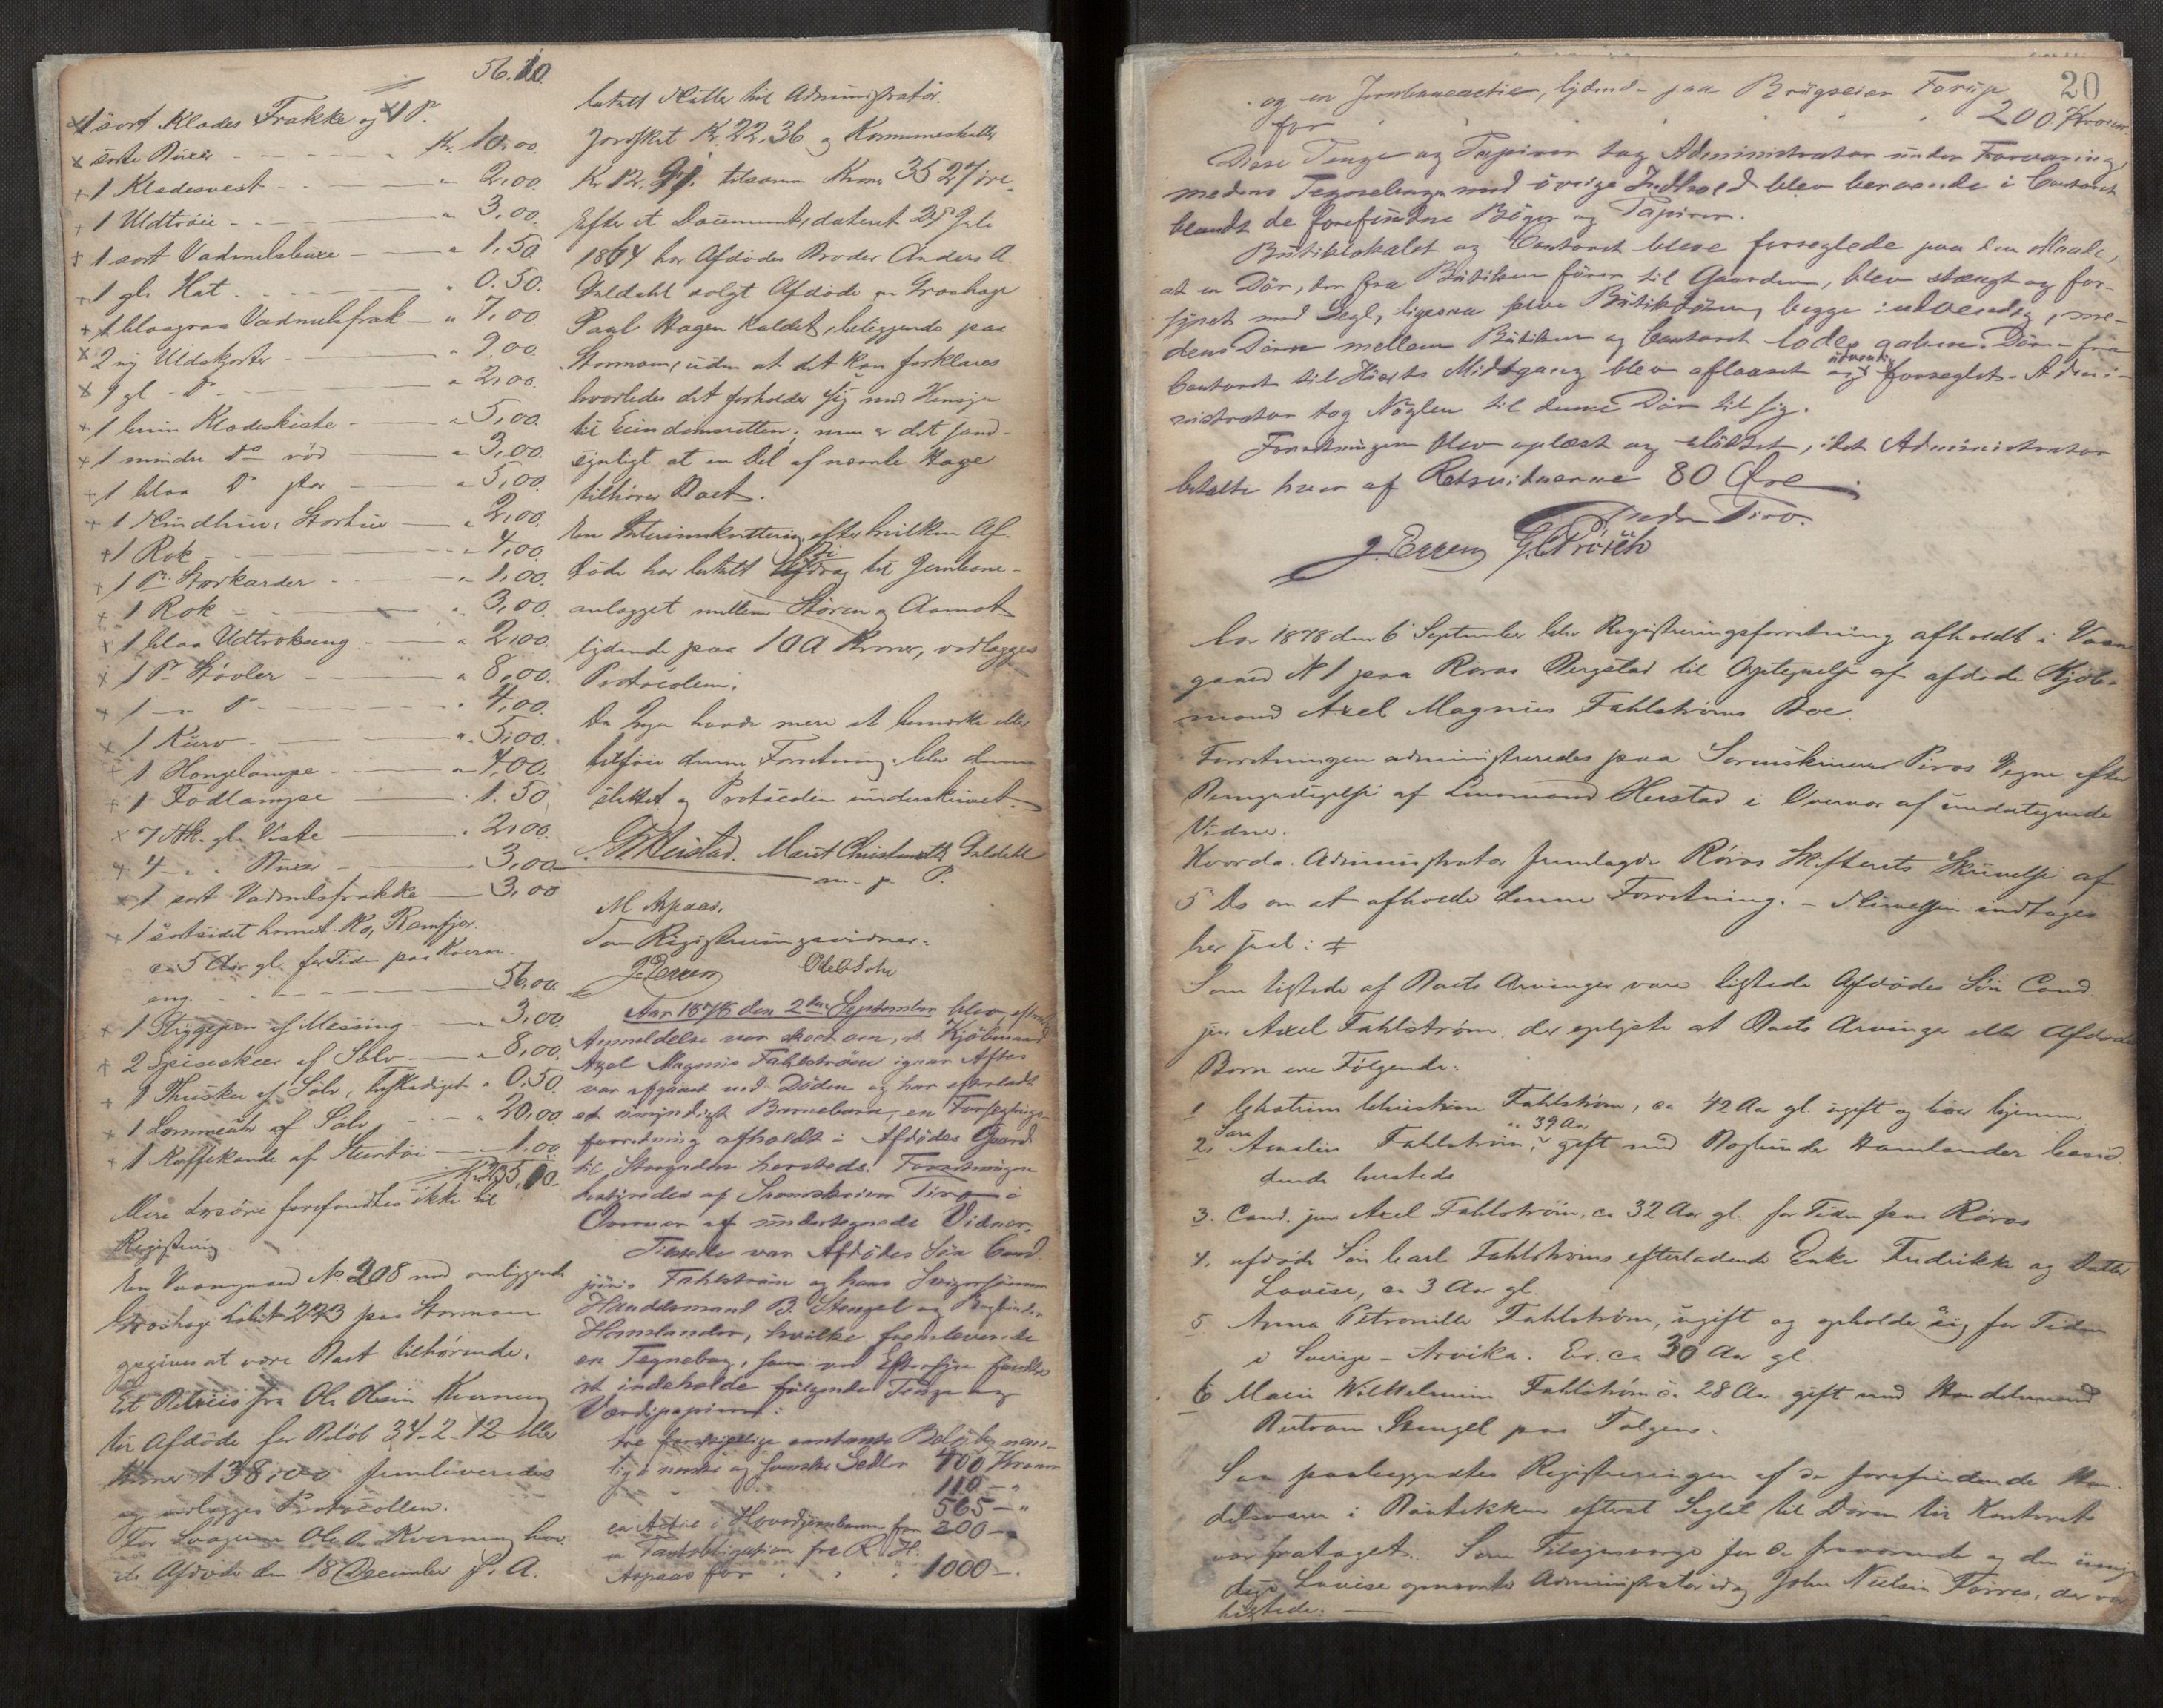 56.10
1 sort Klædes Frakke og 1 Pr
sorte Buxer Kr. 10,00.
1 Klædesvest „ 2,00.
1 Uldtrøie „ 3,00.
1 sort Vadmelsbuxe „ 1,50
1 gl. Hat „ 0.50.
1 blaagraa Vadmelsfrak „ 7,00
2 ny Uldskjorter „ 9,00.
9 gl - Do „ 2,00.
1 Klædeskiste „ 5,00.
1 mindre do rød „ 3,00.
1 blaa Do stor „ 5,00.
1 Skindhue, „ 2,00.
1 Rok „ 4,00.
1 Pr. Storkarder „ 1,00.
1 Rok „ 3,00.
1 blaa „ 2,00.
1 Pr Støvler „ 8,00.
1 „ Do „ 4,00.
1 Kurv „ 5,00.
1 Hængelampe „ 4,00.
1 Fodlampe 1.50
7 Stk. gl. Veste „ 2,00.
4 „ „ Buxer 3,00
1 sort Vadmelsfrakke 3,00
1 sortsidet hornet Ko, Ramfjør.
ca 5 Aar gl. for Tiden paa Kvern-
eng. 56,00.
1 Strygejern af Messing „ 3,00
2 Spiseskeer af Sølv „ 8,00.
1 Theske af Sølv, beskadiget „ 0,50.
1 Lommeuhr af Sølv „ 20,00
1 Kaffekande af 1.00
Mere Løsøre forefandtes ikke til
Registrering
En Vaaningsgaard No 208 med omliggende
Græshage Lobit 223 paa Stormoen
opgives at være Boet tilhørende.
Et Bevis fra Ole Olsen Kverneng
til Afdøde for Beløb 34-2-12
fremleveredes
og vedlægges Protocollen.
For Ole A. Kverneng hav-
de Afdøde den 18 December f. A.
betalt Skatter til Administrator.
Jordskat Kr. 22.36 og Kommuneskatter
Kr 12.91. tilsammen Kroner 35 27 øre.
Efter et Document, dateret 25 Juli
1864 har Afdødes Broder Anders A.
Galdahl solgt Afdøde en Græshage
Paal Hagen kaldet, beliggende paa
Stormoen, uden at det kan forklares
hvorledes det forholder sig med Hensyn
til Eiendomsretten; men er det sand-
synligt at en Del af nævnte Hage
tilhører Boet.
En Interimskvittering, efter hvilken Af-
døde har betalt Bidrag til Jernbane-
anlægget mellem Støren og Aamot
lydende paa 100 Kroner, vedlægges
Protocolen.
Da Ingen havde mere at bemærke eller
tilføie denne Forretning, blev denne
sluttet og Protocolen underskrevet.
Herstad. Marit Christensdtr Galdahl
m. p. P.
M Aspaas.
Som Registreringsvidner:
J. Erzen
Aar 1878 den 2den September blev, efterat
Anmeldelse var skeet om, at Kjøbmand
Axel Magnus Fahlstrøm igaar Aftes
var afgaaet ved Døden og har efterladt
et umyndigt Barnebarn, en Forseglings-
forretning afholdt i Afdødes Gaard
til Stervboet hersteds. Forretningen
bestyredes af Sorenskriver Piro i
Overvær af undertegnede Vidner.
Tilstede var Afdødes Søn Cand.
juris Fahlstrøm og hans Svigersønner
Handelsmand B. Stengel og Bogbinder
Hamlander, hvilke fremleverede
en Tegnebog, som ved Eftersyn fandtes
at indeholde følgende Penge og
Værdipapirer:
tre forskjellige contante Beløb, nem-
lig i norske og svenske Sedler 400 Kroner
„ 110 - „
„ 565 - „
en Actie i Hovedjernbanen for 200 - „
en Pantobligation fra R. H.
Aspaas for 1000 -.
20
og en Jernbaneactie, lydende paa
for 200 Kroner.
Disse Penge og Papirer tog Administrator under Forvaring,
medens Tegnebogen med øvrige Indhold blev beroende i Contoret
blandt de forefundne Bøger og Papirer.
Butiklokalet og Contoret bleve forseglede paa den Maade,
at en Dør, der fra Butiken fører til Gaarden, blev stængt og for-
synet med Segl, ligesaa selve Butikdøren, begge indvendig, me-
dens Døren mellem Butiken og Contoret lodes aaben. Døren fra
Contoret til Husets Midtgang blev aflaaset og udvendig forseglet. Admi-
nistrator tog Nøglen til denne Dør til sig.
Forretningen blev oplæst og sluttet, idet Administrator
betalte hver af Retsvidnerne 80 Øre.
Piro.
J. Erzen G. Prösch
Aar 1878 den 6 September blev Registreringsforretning afholdt i Vaane
gaard N 1 paa Røros Bergstad til Optegnelse af afdøde Kjøb-
mand Axel Magnus Fahlstrøms Boe.
Forretningen administreredes paa Sorenskriver Piros Vegne efter
Bemyndigelse af Lensmand Herstad i Overvær af undertegnede
Vidner.
Hvorda. Administrator fremlagde Røros Skifterets Skrivelse af
5 Ds om at afholde denne Forretning. - Skrivelsen indtages
her saal: ‡
Som tilstede af Boets Arvinger vare tilstede Afdødes Søn Cand.
jur Axel Fahlstrøm, der oplyste at Boets Arvinger eller Afdødes
Børn ere Følgende:
1 Christine Fahlstrøm, ca 42 Aar gl. ugift og hjemme
2. Sara Amalia Fahlstrøm, ca 39 Aar gift med Bogbinder Hamlander boesid-
dende hersteds
3. Cand. jur. Axel Fahlstrøm, ca 32 Aar gl. for Tiden paa Røros
4. afdøde Søn Carl Fahlstrøms efterladende Enke Fredrikke og Datter
Lovise, ca 3 Aar gl.
5 Anna Petronille Fahlstrøm, ugift og opholder sig for Tiden
i Sverige - Arvika. Er ca 30 Aar gl
6 Marie Wilhelmine Fahlstrøm ca 28 Aar gift med Handelsmand
Bertram Stengel paa Tolgen.
Saa paabegyndtes Registreringen af de forefindende Han-
delsvarer i Boutikken efterat Seglet til Døren til Kontoret
var frataget. Som Tilsynsværge for de fraværende og den umyn-
dige Lovise opnævnte Administrator idag John Nielsen Tørres, der var
tilstede. —